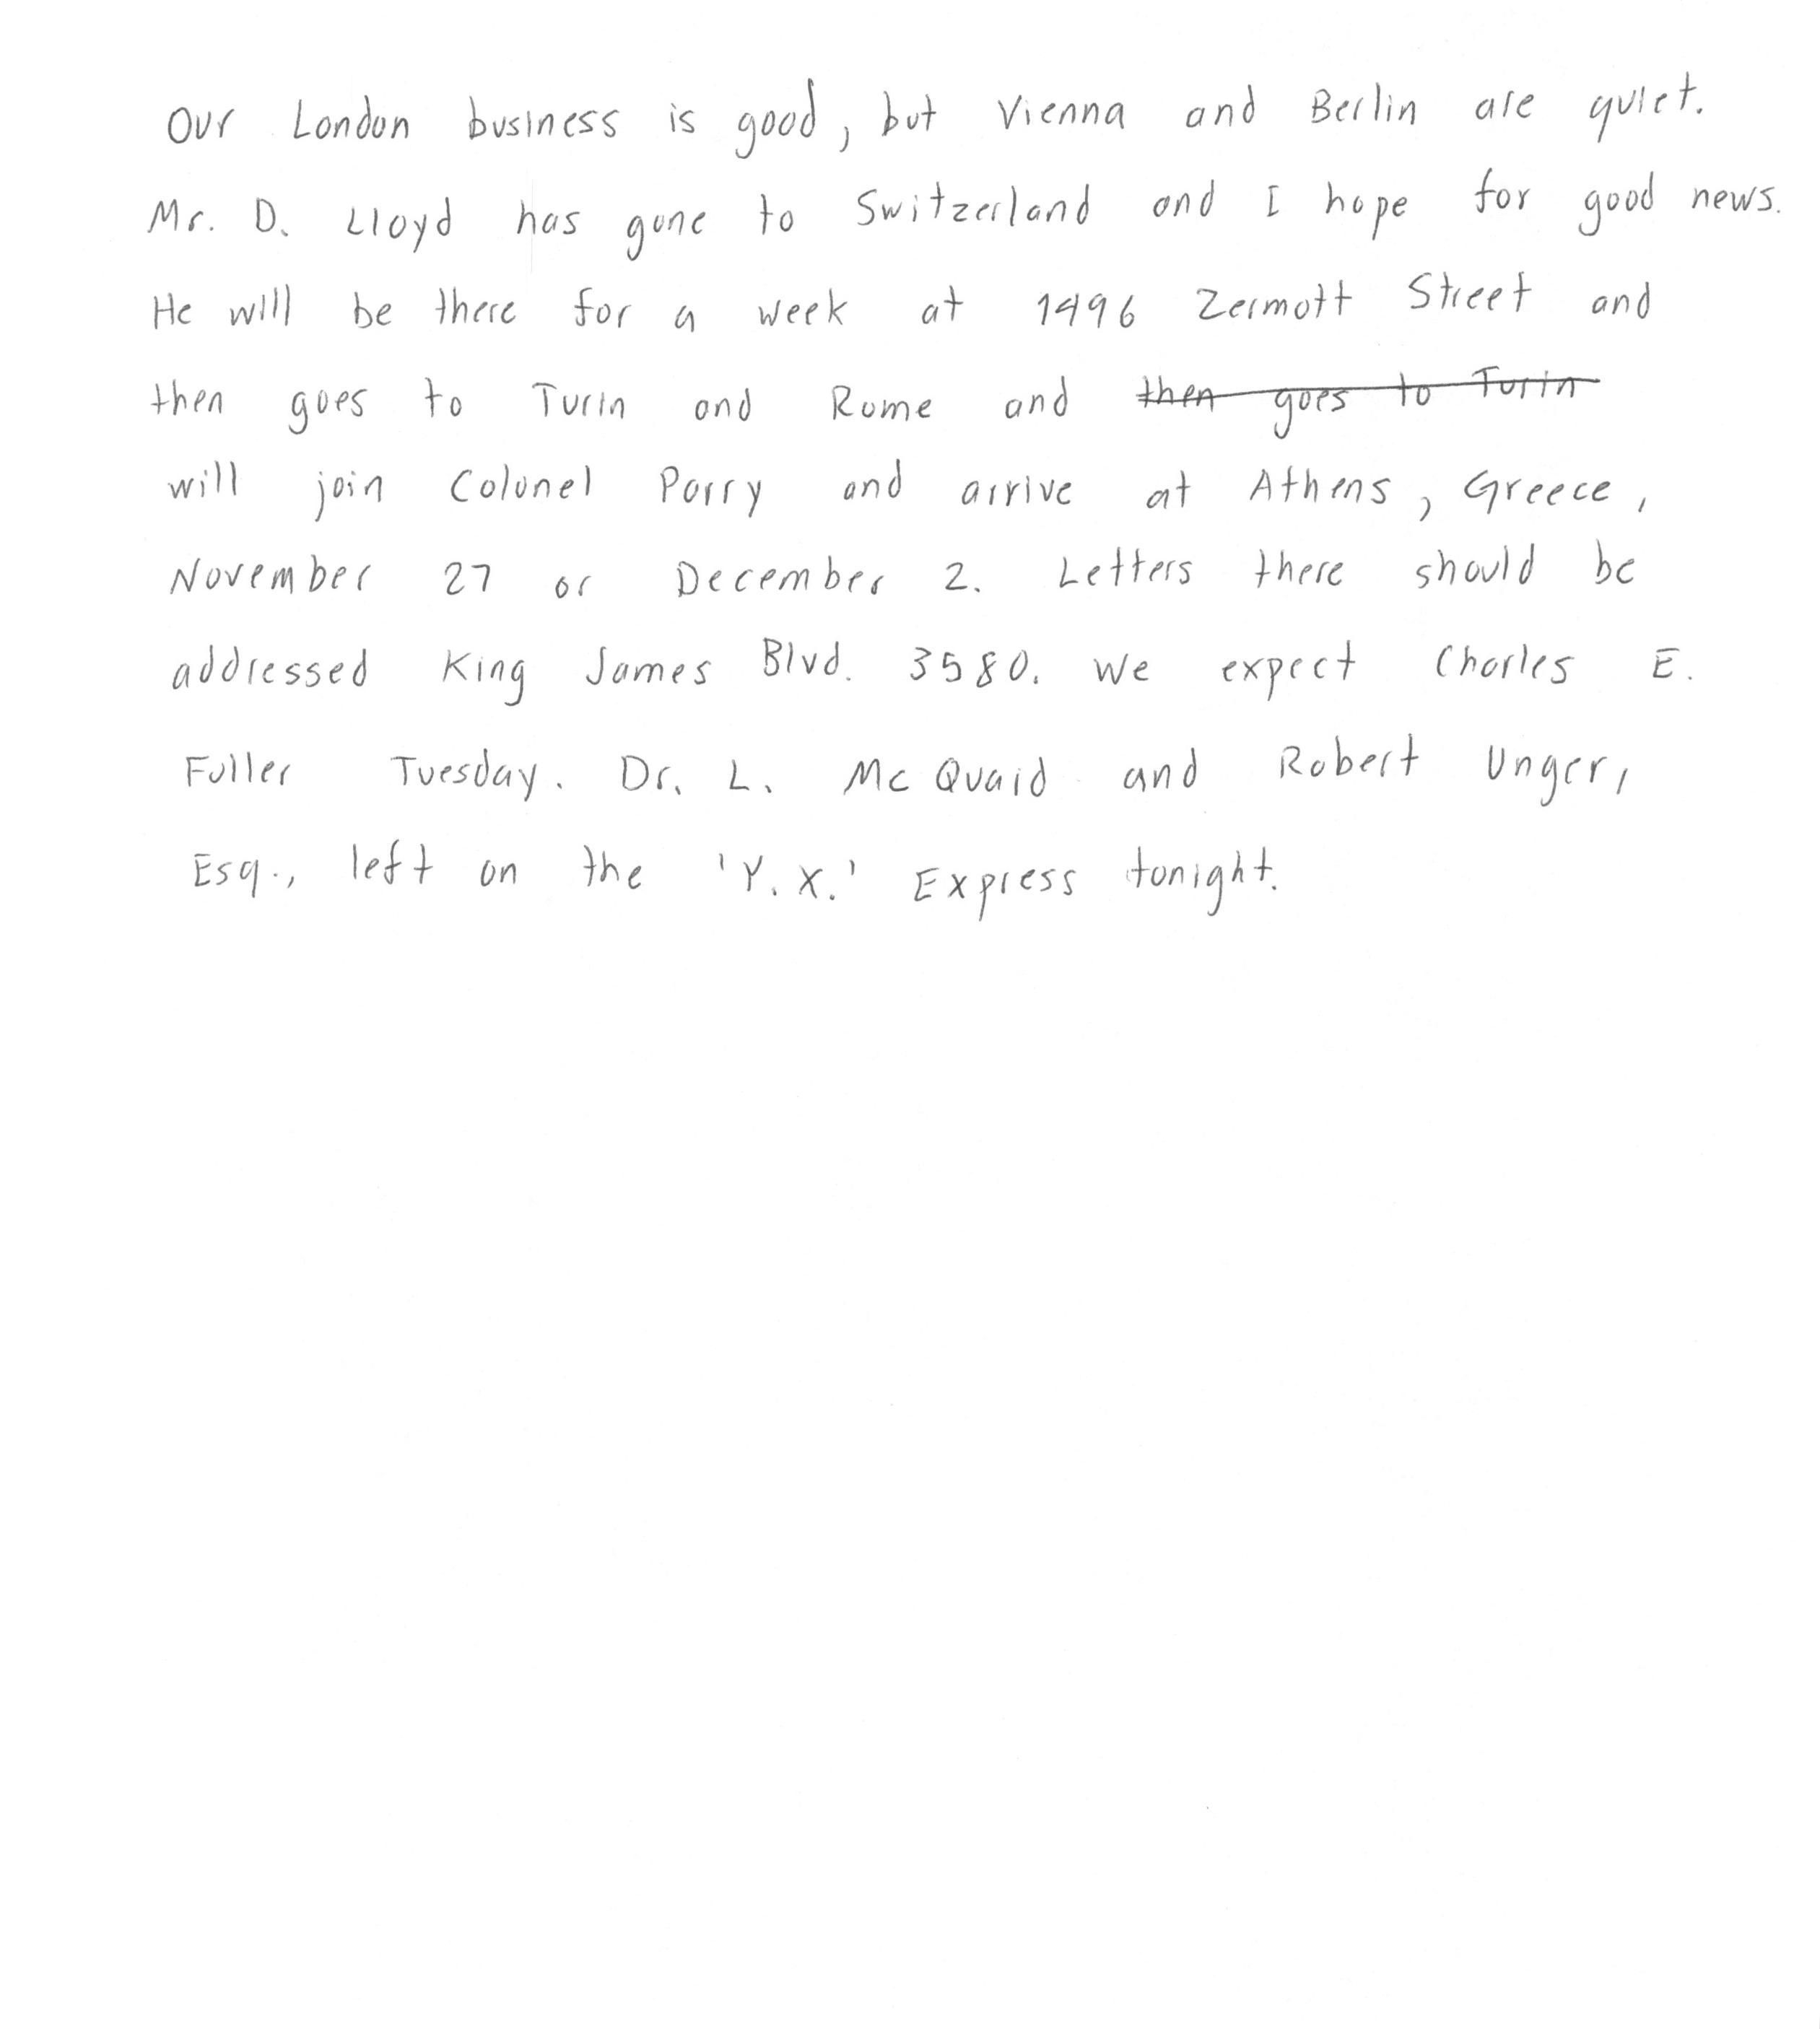 Our London business is good, but Vienna and Berlin are quiet.
Mr. D. Lloyd has gone to Switzerland and I hope for good news.
He will be there for a week at 1496 Zermott Street and
then goes to Turin and Rome and then goes to Turin
will join Colonel Parry and arrive at Athens, Greece,
November 27 or December 2. Letters there should be
addressed King James Blvd. 3580. We expect Charles E.
Fuller Tuesday. Dr. L. Mc Quaid and Robert Unger,
Esq., left on the 'Y.X.' Express tonight.